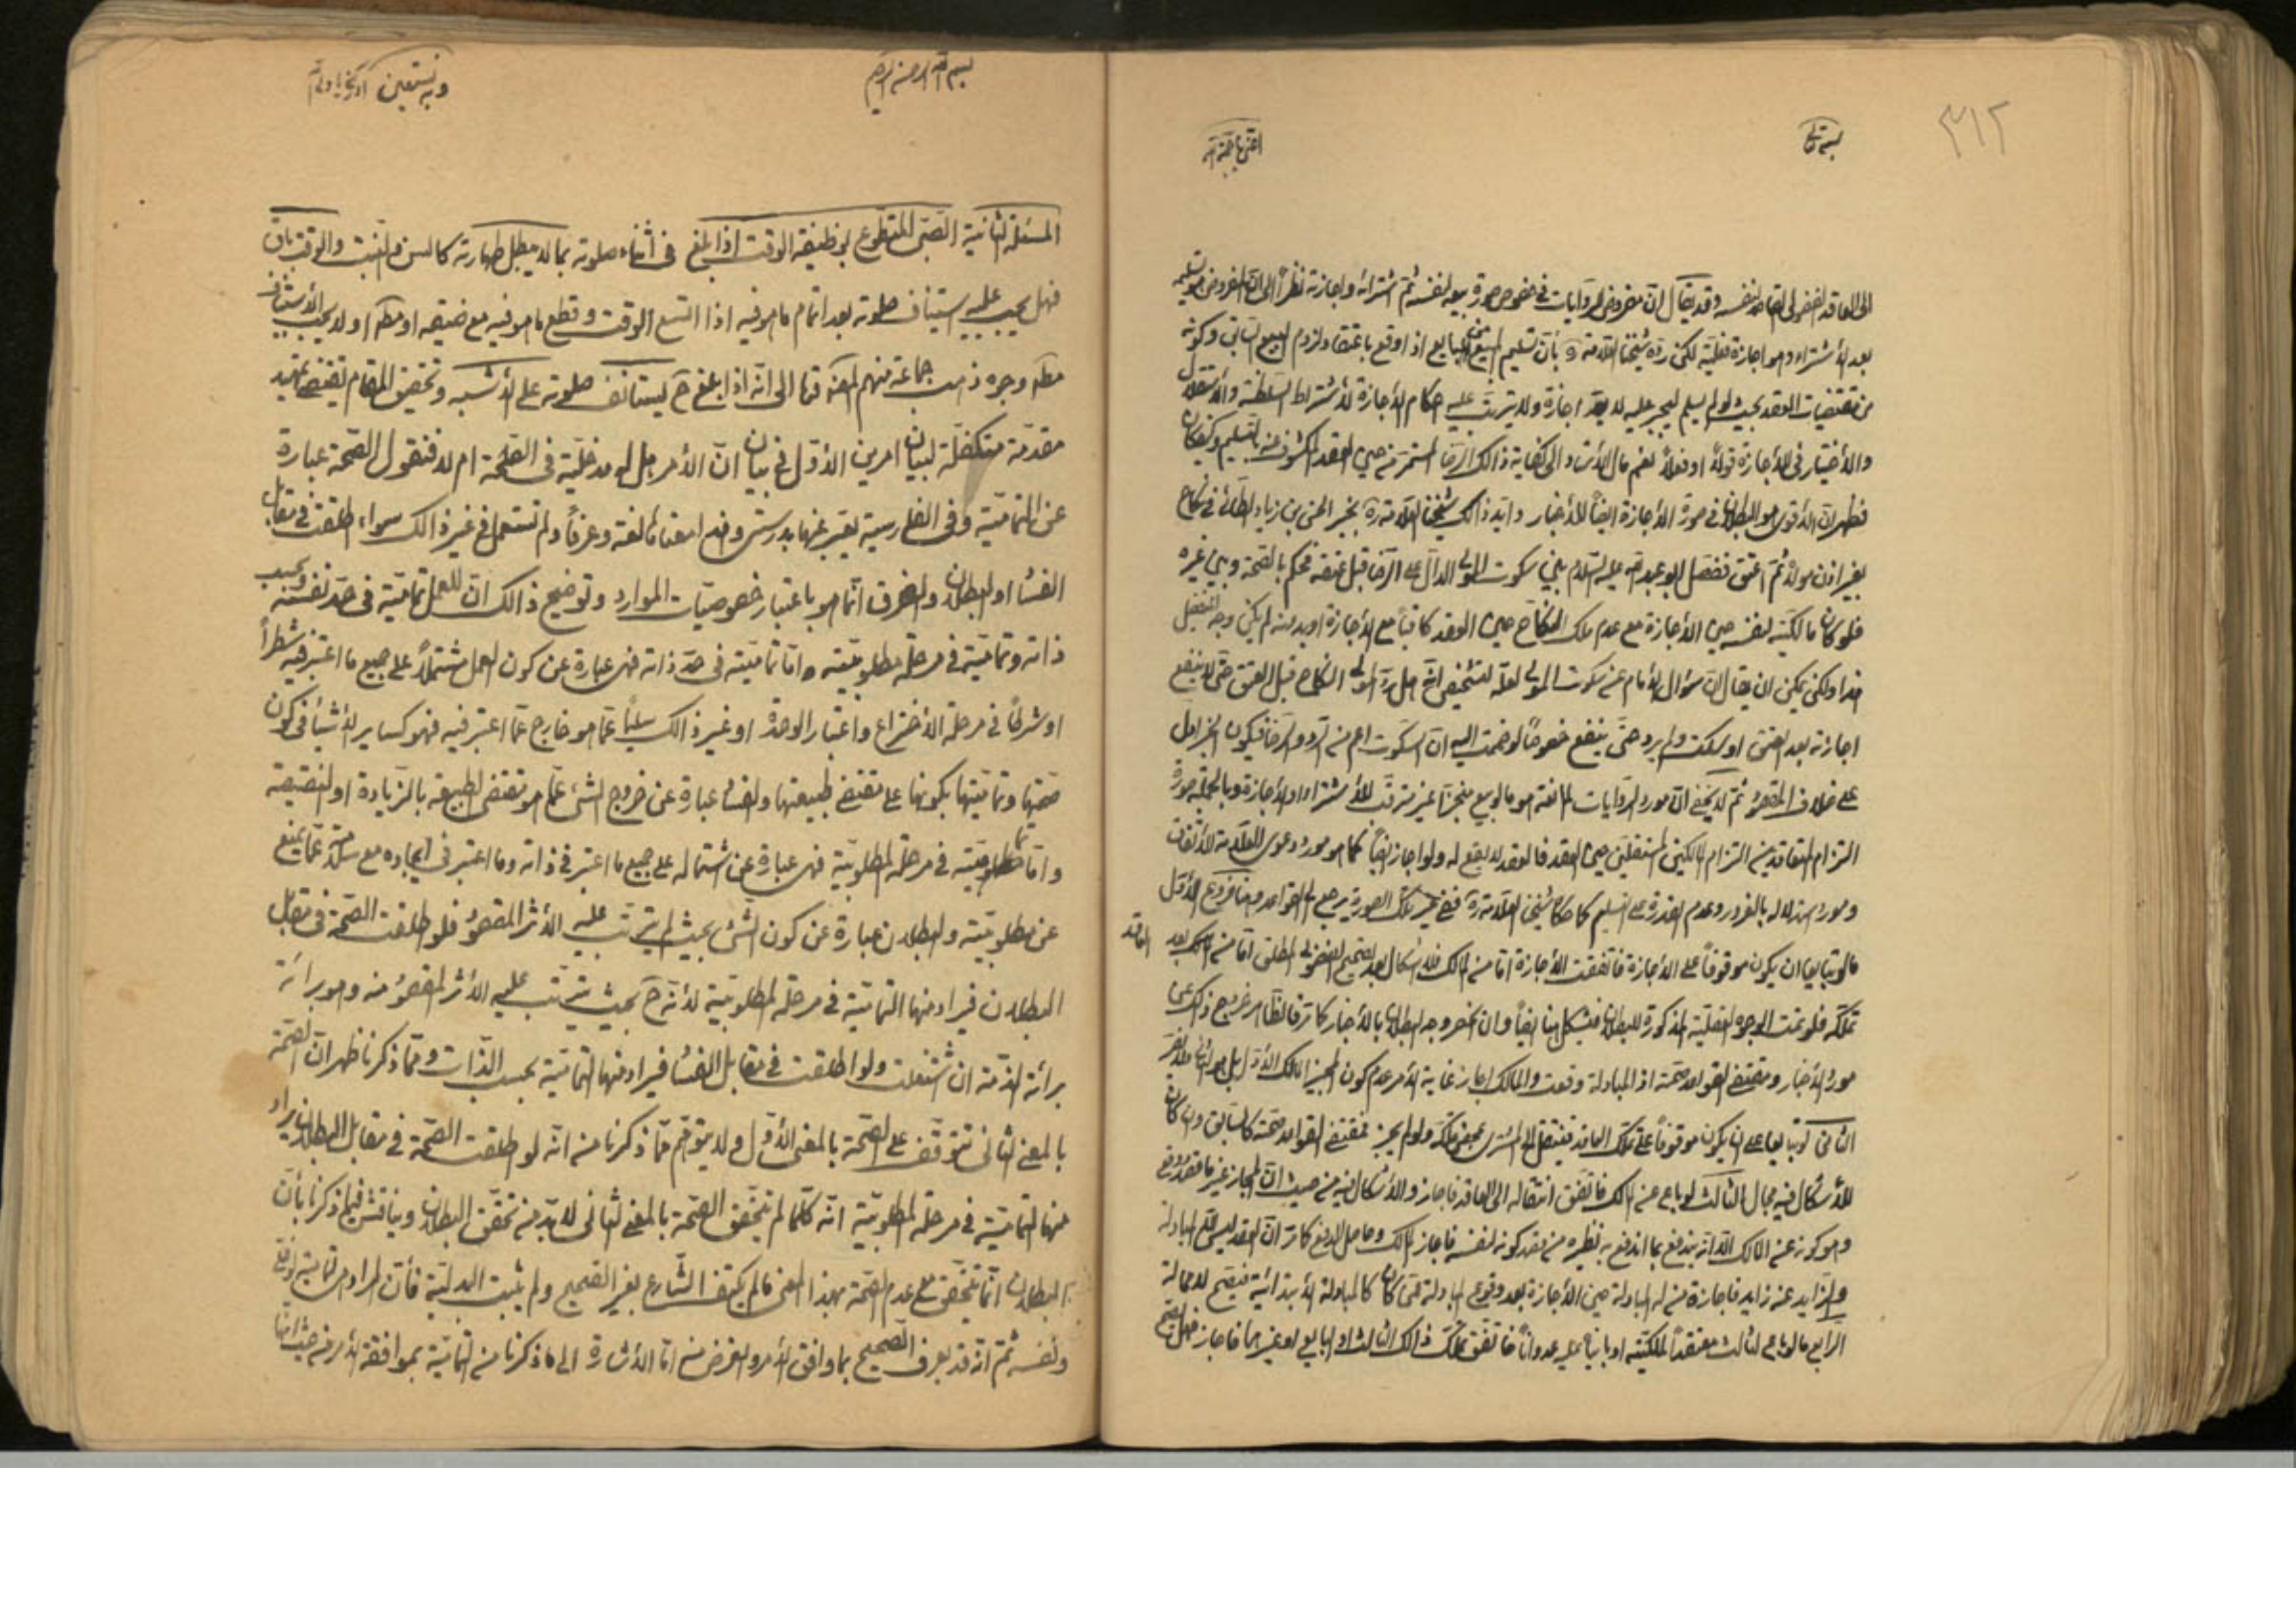 ٣١٢
الى العاقد الفضولى القاصد لنفسه وقد يقال ان مفروض الروايات فى خصوص صورة بيعه لنفسه ثم اشترائه واجازته نظراً الى ان المفروض هو تسليمه
بعد الأشتراء وهو اجازة فعلية لكن رده شيخنا العلامة ره بأن تسليم المبيع من البايع اذا وقع باعتقاد لزوم البيع السابق وكونه
من مقتضيات العقد بحيث لو لم يسلم ليجبر عليه لا يعد اجازة ولا يترتب عليه احكام الأجازة لأشتراط السلطنة والأستقلال
والأختيار فى الأجازة قولاً او فعلاً نعم مال الأستاد الى كفاية ذالك الرضا المستمر من حين العقد المكشوف عنه بالتسليم وكيفكان
فظهر ان الأقوى هو البطلان فى صورة الأجازة ايضاً للأخبار وايد ذالك شيخنا العلامة ره بخبر الحسن بن زياد الطائى فى نكاح
بغير اذن مولاه ثم اعتق ففصل ابو عبد الله عليه السلام بين سكوت المولى الدال على الرضا قبل عتقه فحكم بالصحة وبين غيره
فلو كان مالكيته لنفسه حين الأجازة مع عدم ملك النكاح حين العقد كافياً مع الأجازة او بدونه لم يكن وجه للتفصيل
هذا ولكن يمكن ان يقال ان سؤال الأمام عن سكوت المولى لعله لتشخيص انه هل رد المولى النكاح قبل العتق حتى لا ينفع
اجازته بعد العتق او سكت ولم يرد حتى ينفع خصوصاً لو ضمت اليه ان السكوت اعم من الرد والرضا فيكون الخبر ادل
على خلاف المقصود ثم لا يخفى ان مورد الروايات المانعة هو ما لو بيع منجزاً غير مترتب للأشتراء او الأجازة وبالجملة صورة
التزام المتعاقدين التزام المالكين المستقلين حين العقد فالعقد لا يقع له ولو اجاز ايضاً كما هو مورد دعوى العلامة الأتفاق
ومورد استدلاله بالغرر وعدم القدرة على التسليم كما حكاه شيخنا العلامة ره ففى غير تلك الصورة يرجع الى القواعد وهنا فروع الأول
مالو تبايعا ان يكون موقوفاً على الأجازة فاتفقت الأجازة اما من المالك فلا اشكال بعد تصحيح الفضولى المطلق اما من المالك بعد
تملكه فلو تمت الوجوه العقلية المذكورة للبطلان فيشكل هنا ايضاً وان انحصر وجه البطلان بالأخبار كما مر فالظاهر خروج ذلك عن
مورد الأخبار ومقتضى القواعد صحته اذ المبادلة وقعت والمالك اجاز غاية الأمر عدم كون المجيز المالك الأول بل هو الثانى ولا ضرر
الثانى لو تبايعا على ان يكون موقوفاً على تملك العاقد فينتقل الى المشترى بمحض تملكه ولو لم يجز فمقتضى القواعد صحته كالسابق وان كان
للأشكال فيه مجال الثالث لو باع عن المالك فاتفق انتقاله الى العاقد فاجاز والأشكال فيه من حيث ان المجاز غير ما قصد وقع
وهو كونه عن المالك الا انه يندفع بما اندفع به نظيره من قصد كونه لنفسه فاجاز المالك وحاصل الدفع كما مر ان العقد ليس الا المبادلة
والزايد عنه زايد فاجازة من له المبادلة حين الأجازة بعد وقوع المبادلة كان كالمبادلة الأبتدائية فيصح لا محالة
الرابع مالو باع لثالث معتقداً لملكيته او بانياً عليه عدواناً فاتفق تملك ذالك الثالث او البايع او غيرهما فاجاز فهل يصح
بسم الله الرحمن الرحيم
وبه نستعين
المسئلة الثانية الصبى المتطوع بوظيفة الوقت اذا بلغ فى أثناء صلوته بما لا يبطل طهارته كالسن والنبت والوقت باق
فهل يجب عليه استيناف صلوته بعد اتمام ما هو فيه اذا اتسع الوقت وقطع ما هو فيه مع ضيقه او مطلقا او لا يجب الأستيناف
مطلقا وجوه ذهب جماعة منهم المحقق قدها الى انه اذا بلغ ح يستانف صلوته على الأشبه وتحقيق المقام يقتضى تمهيد
مقدمة متكفلة لبيان امرين الأول فى بيان ان الأمر هل له مدخلية فى الصحة ام لا فنقول الصحة عبارة
عن التمامية وفى الفارسية يعبر عنها بدرستى وهذا معناها لغة وعرفاً ولم تستعمل فى غير ذالك سواء اطلقت فى مقابل
الفساد او البطلان والفرق انما هو باعتبار خصوصيات الموارد وتوضيح ذالك ان للعمل تمامية فى حد نفسه وبحسب
ذاته وتمامية فى مرحلة مطلوبيته واما تماميته فى حد ذاته فهى عبارة عن كون العمل مشتملاً على جميع ما اعتبر فيه شطراً
او شرطاً فى مرحلة الأختراع واعتبار الوحدة او غير ذالك سلباً عما هو خارج عما اعتبر فيه فهو كساير الأشياء فى كون
صحتها وتماميتها بكونها على مقتضى طبيعتها والفساد عبارة عن خروج الشئ عما هو مقتضى الطبيعة بالزيادة او النقيصة
واما تماميته فى مرحلة المطلوبية فهى عبارة عن اشتماله على جميع ما اعتبر فى ذاته وما اعتبر فى ايجاده مع سلامته عما يمنع
عن مطلوبيته والبطلان عبارة عن كون الشئ بحيث لم يترتب عليه الأثر المقصود فلو اطلقت الصحة فى مقابل
البطلان فيراد منها التمامية فى مرحلة المطلوبية لأنه ح بحيث يترتب عليه الأثر المقصود منه وهو برائة
برائة الذمة ان اشتغلت ولو اطلقت فى مقابل الفساد فيراد منها التمامية بحسب الذات ومما ذكرنا ظهر ان الصحة
بالمعنى الثانى تتوقف على الصحة بالمعنى الأول ولا يتوهم مما ذكرنا من انه لو اطلقت الصحة فى مقابل البطلان يراد
منها التمامية فى مرحلة المطلوبية انه كلما لم يتحقق الصحة بالمعنى الثانى لا بد من تحقق البطلان ويناقش فيما ذكرنا بأن
البطلان انما يتحقق مع عدم الصحة بهذا المعنى مالم يكتف الشارع بغير الصحيح ولم يثبت البدلية فأن المراد من التمامية
ونفسه ثم انه قد يعرف الصحيح بما وافق الأمر والغرض منه اما الأشارة الى ما ذكرنا من التمامية بموافقة الأمر من حيث انها